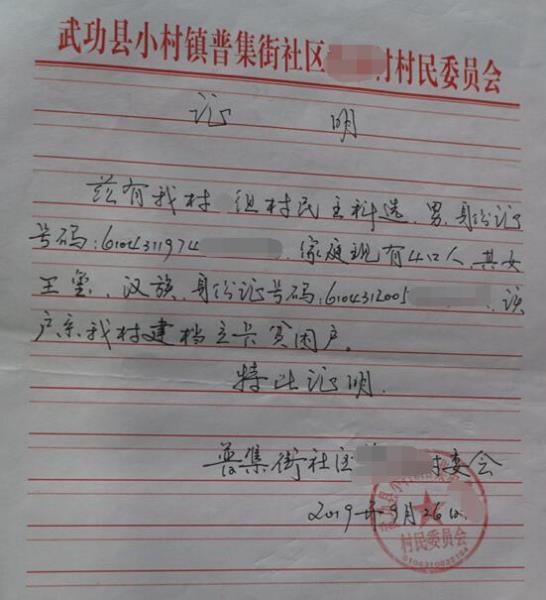 武功县小村镇普集街社区 村村民委员会
证 明
兹有我村 组村民王科选,男,身份证
号码:6104311974 ,家庭现有4口人,其女
王玺,汉族,身份证号码:6104312005 ,该
户系我村建档立卡贫困户。
特此证明.
普集街社区 村委会
2019年9月26日.
村民委员会